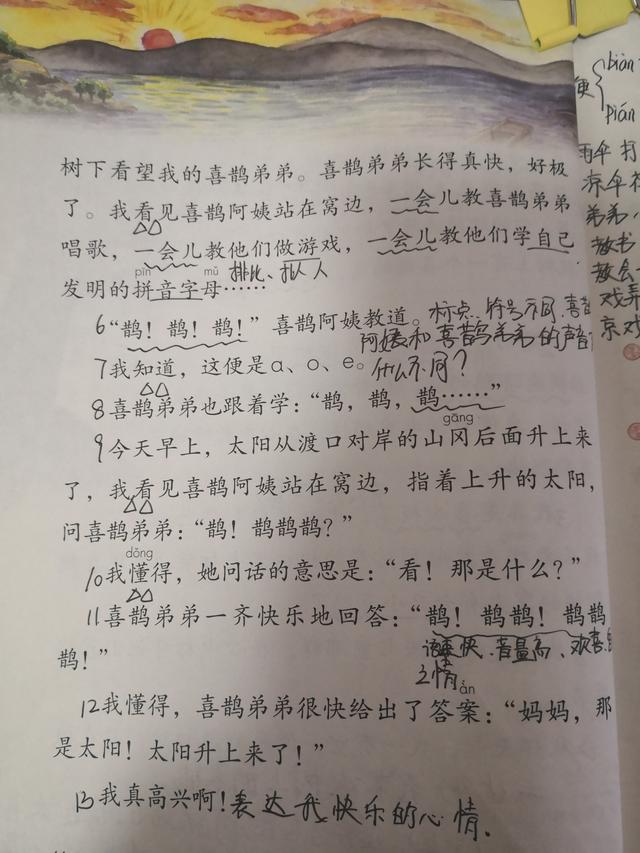 biàn
便
pián
雨伞 打
凉伞
弟弟
教书
教会
戏弄
京戏
树下看望我的喜鹊弟弟。喜鹊弟弟长得真快，好极
了。我看见喜鹊阿姨站在窝边，一会儿教喜鹊弟弟
唱歌，一会儿教他们做游戏，一会儿教他们学自己
pīn mǔ 排比、拟人
发明的拼音字母……
6“鹊！鹊！鹊！”喜鹊阿姨教道。标点、符号不同，喜鹊
阿姨和喜鹊弟弟的声音
7我知道，这便是ɑ、o、e。什么不同？
8喜鹊弟弟也跟着学：“鹊，鹊，鹊……”
gāng
9今天早上，太阳从渡口对岸的山冈后面升上来
了，我看见喜鹊阿姨站在窝边，指着上升的太阳，
问喜鹊弟弟：“鹊！鹊鹊鹊？”
dǒng
10我懂得，她问话的意思是：“看！那是什么？”
11喜鹊弟弟一齐快乐地回答：“鹊！鹊鹊！鹊鹊
鹊！”
语速快、音量高、欢喜
之情
àn
12我懂得，喜鹊弟弟很快给出了答案：“妈妈，那
是太阳！太阳升上来了！”
13我真高兴啊！表达我快乐的心情。